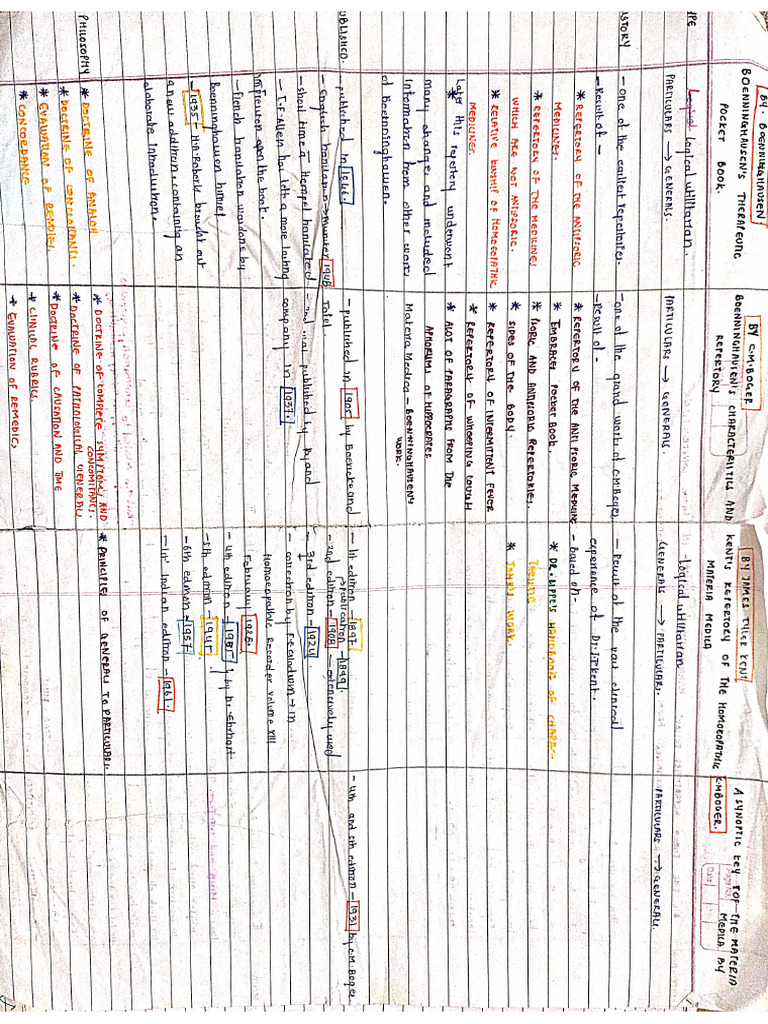 BY. BOENNINGHAUSEN
BOENNINGHAUSEN'S THERAPEUTIC
POCKET BOOK.
BY C.M.BOGER
BOENNINGHAUSEN'S CHARACTERISTICS AND
REPERTORY
BY JAMES TYLER KENT
KENT'S REPERTORY OF THE HOMOEOPATHIC
MATERIA MEDICA
A SYNOPTIC KEY TOF THE MATERIA
MEDICA BY
C.M.BOGER.
YPE
Logical Logical utilitarian.
PARTICULARS → GENERALS.
PARTICULARS → GENERALS
-Logical utilitarian
GENERALS → PARTICULARS.
PARTICULARS → GENERALS.
ISTORY
- one of the earliest repertories.
- Result of -
* REPERTORY OF THE ANTIPSORIC
MEDICINES.
* REPERTORY OF THE MEDICINES
WHICH ARE NOT ANTIPSORIC.
* RELATIVE KINSHIP OF HOMOEOPATHIC
MEDICINES.
Later this repertory underwent
many change and included
information from other work
of Boenninghausen.
- one of the grand work of C.M.Boger
- Result of -
* REPERTORY OF THE ANTI PSORIC MEDICINE
* EMBRACES POCKET BOOK.
* PSORIC AND ANTIPSORIC REPERTORIES.
* SIDES OF THE BODY.
* REPERTORY OF INTERMITTENT FEVER
* REPERTORY OF WHOOPING COUGH
* ALOT OF PARAGRAPHS FROM THE
APHORISMS OF HIPPOCRATES
Materia Medica - BOENNINGHAUSEN'S
WORK.
- Result of the vast clinical
experience of Dr. J.T.Kent.
- based on -
* DR. LIPPE'S HANDBOOK OF CHARAC-
TERISTIC
* JAHR'S WORK.
PUBLISHED.
- published in 1846.
- English translation - 1846
- short time a Hempel translated
- T.F. Allen has left a more lasting
impression upon the book.
- French translation was done by
Boenninghausen himself
- 1935 - H.A. Roberts brought out
a new addition, containing an
elaborate introduction.
- published in 1905 by Boericke and
Tafel.
- 2nd was published by Roy and
company in 1937.
- 1st edition - 1897
publication - 1899.
- 2nd edition - 1908 - extensively used
- 3rd edition - 1924
- correction by in
Homoeopathic Recorder volume XIII
February 1928.
- 4th edition - 1935 } by Dr. Ehrhart
- 5th edition - 1945
- 6th edition - 1957
- 1st Indian edition - 1961.
- 4th and 5th edition - 1931 by C.M. Boger
PHILOSOPHY
* DOCTRINE OF ANALOGY
* DOCTRINE OF CONCOMITANTS.
* EVALUATION OF REMEDIES.
* CONCORDANCE
* DOCTRINE OF COMPLETE SYMPTOM, AND
CONCOMITANT.
* DOCTRINE OF PATHOLOGICAL GENERAL,
* DOCTRINE OF CAUSATION AND TIME
* CLINICAL RUBRICS.
→ EVALUATION OF REMEDIES,
* PRINCIPLES OF GENERALS TO PARTICULARS.